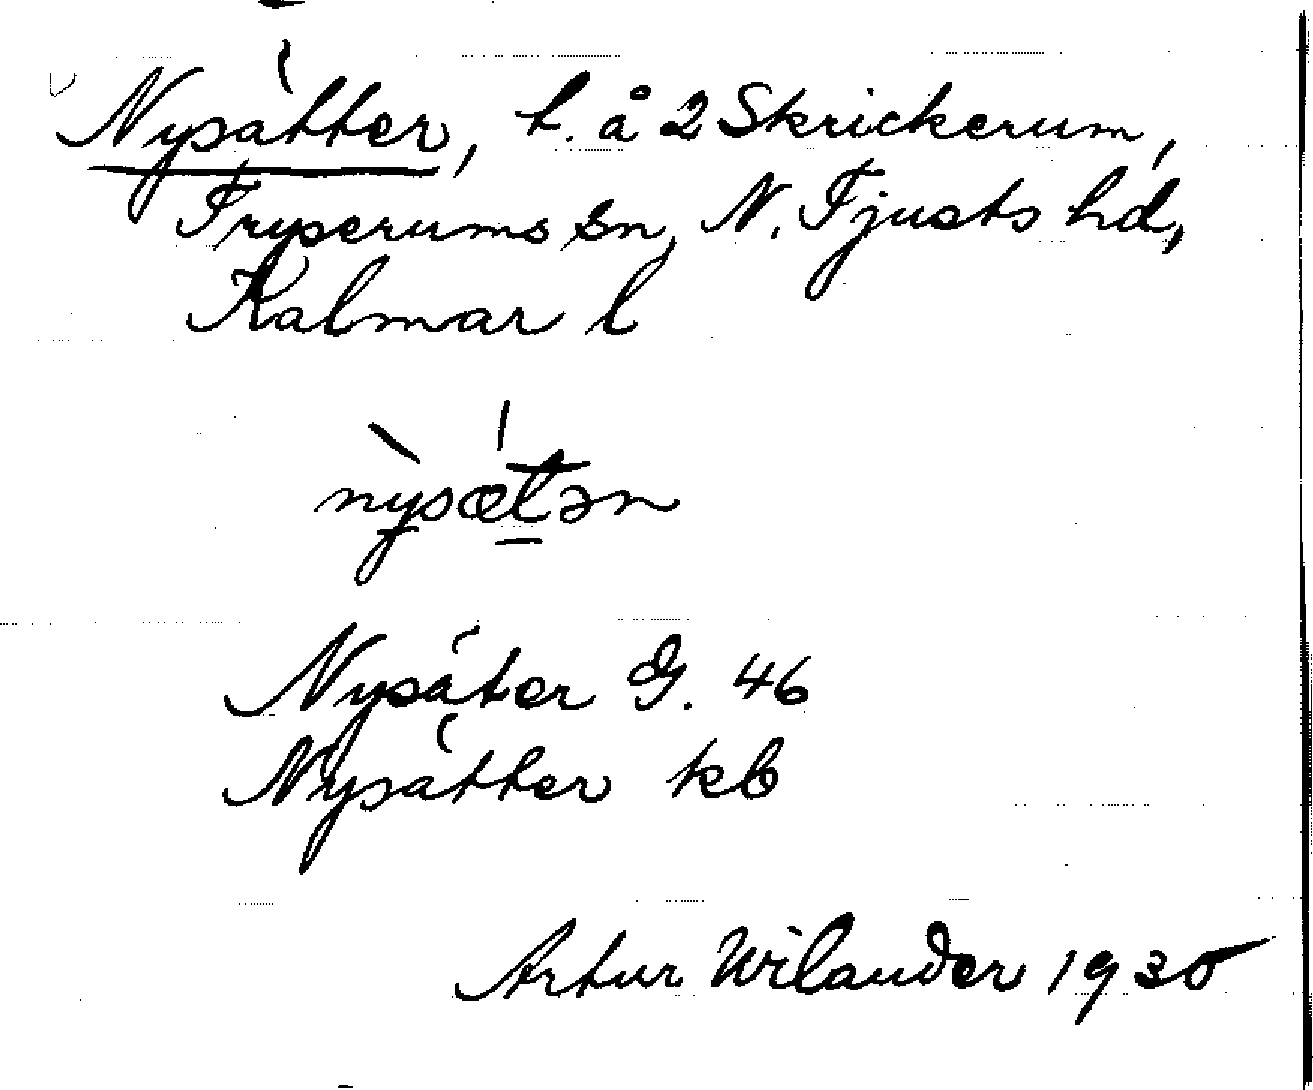 Nysätter, t. å 2 Skrickerum,
Tryserums sn, N. Tjusts hd,
Kalmar l
nysætən
Nysäter G. 46
Nysätter kb
Artur Wilander 1930